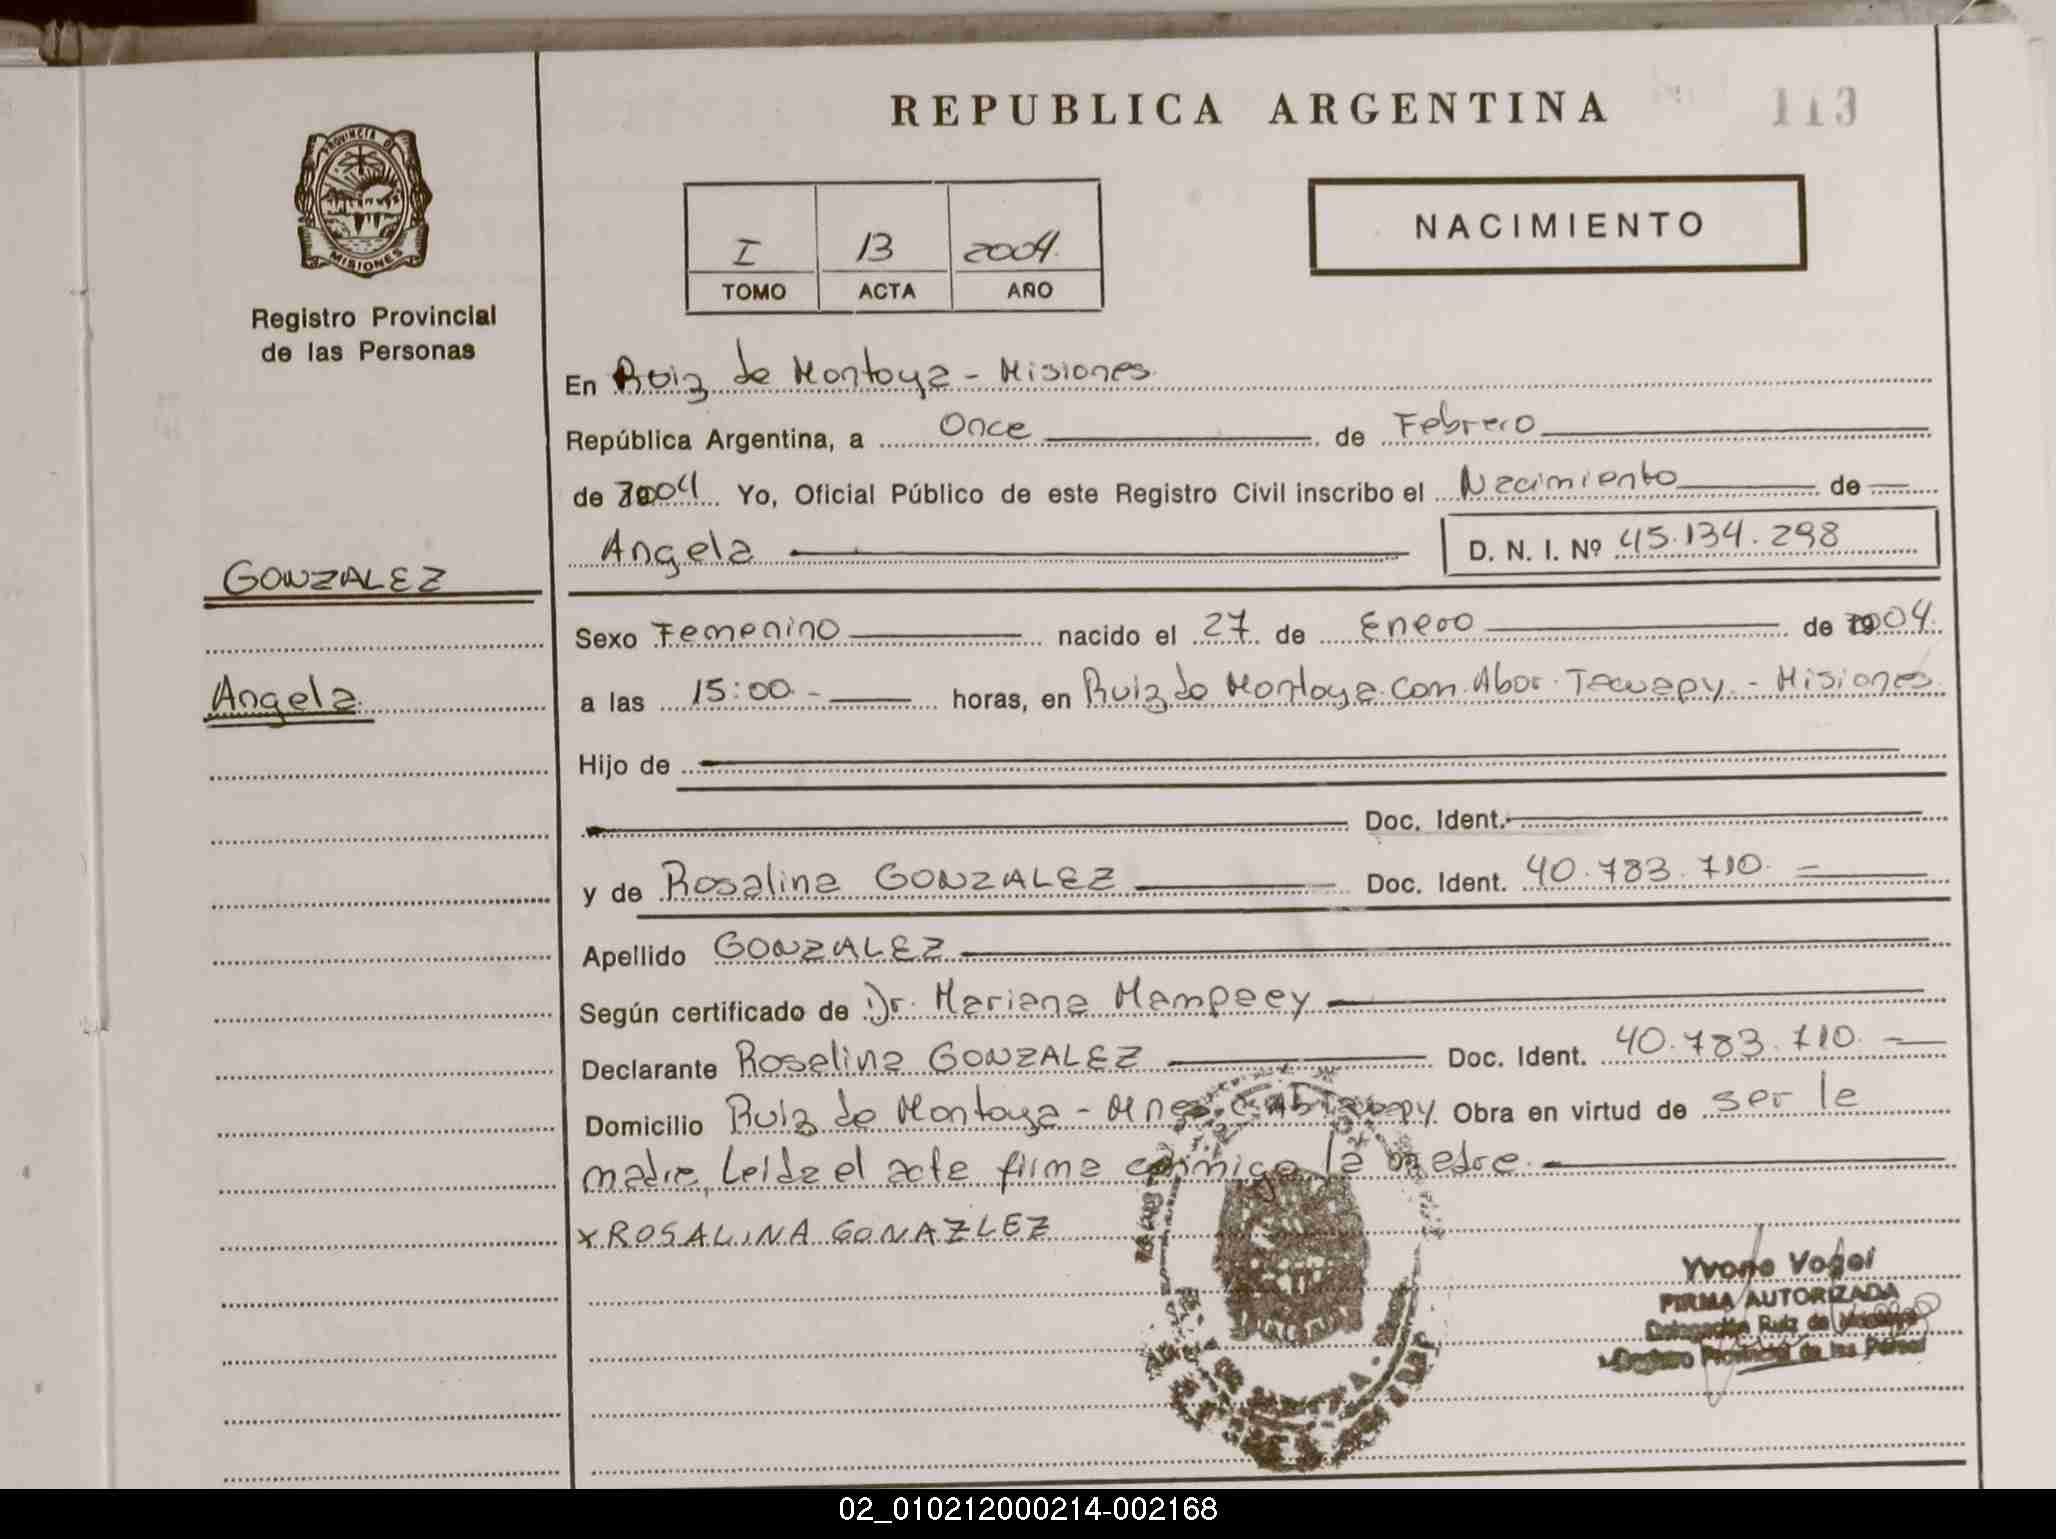 REPUBLICA ARGENTINA
113
PROVINCIA DE
MISIONES
Registro Provincial
de las Personas
I 13 2004
TOMO ACTA AÑO
NACIMIENTO
En Ruiz de Montoya - Misiones
República Argentina, a Once de Febrero
de 2004 Yo, Oficial Público de este Registro Civil inscribo el Nacimiento de
Angela D. N. I. Nº 45.134.298
GONZALEZ
Sexo Femenino nacido el 27 de Enero de 2004.
Angela
a las 15:00.- horas, en Ruiz de Montoya. Com. Abor. Tacuapy. - Misiones
Hijo de
Doc. Ident.
y de Rosalina GONZALEZ Doc. Ident. 40.783.710.
Apellido GONZALEZ
Según certificado de Dr. Mariana Mampaey
Declarante Rosalina GONZALEZ Doc. Ident. 40.783.710.
Domicilio Ruiz de Montoya - Mnes. Obra en virtud de ser la
madre, Leida el acta firma conmigo la madre.
x ROSALINA GONAZLEZ
Yvone Vogel
FIRMA AUTORIZADA
Delegación Ruiz de Montoya
Registro Provincial de las Person
02_010212000214-002168